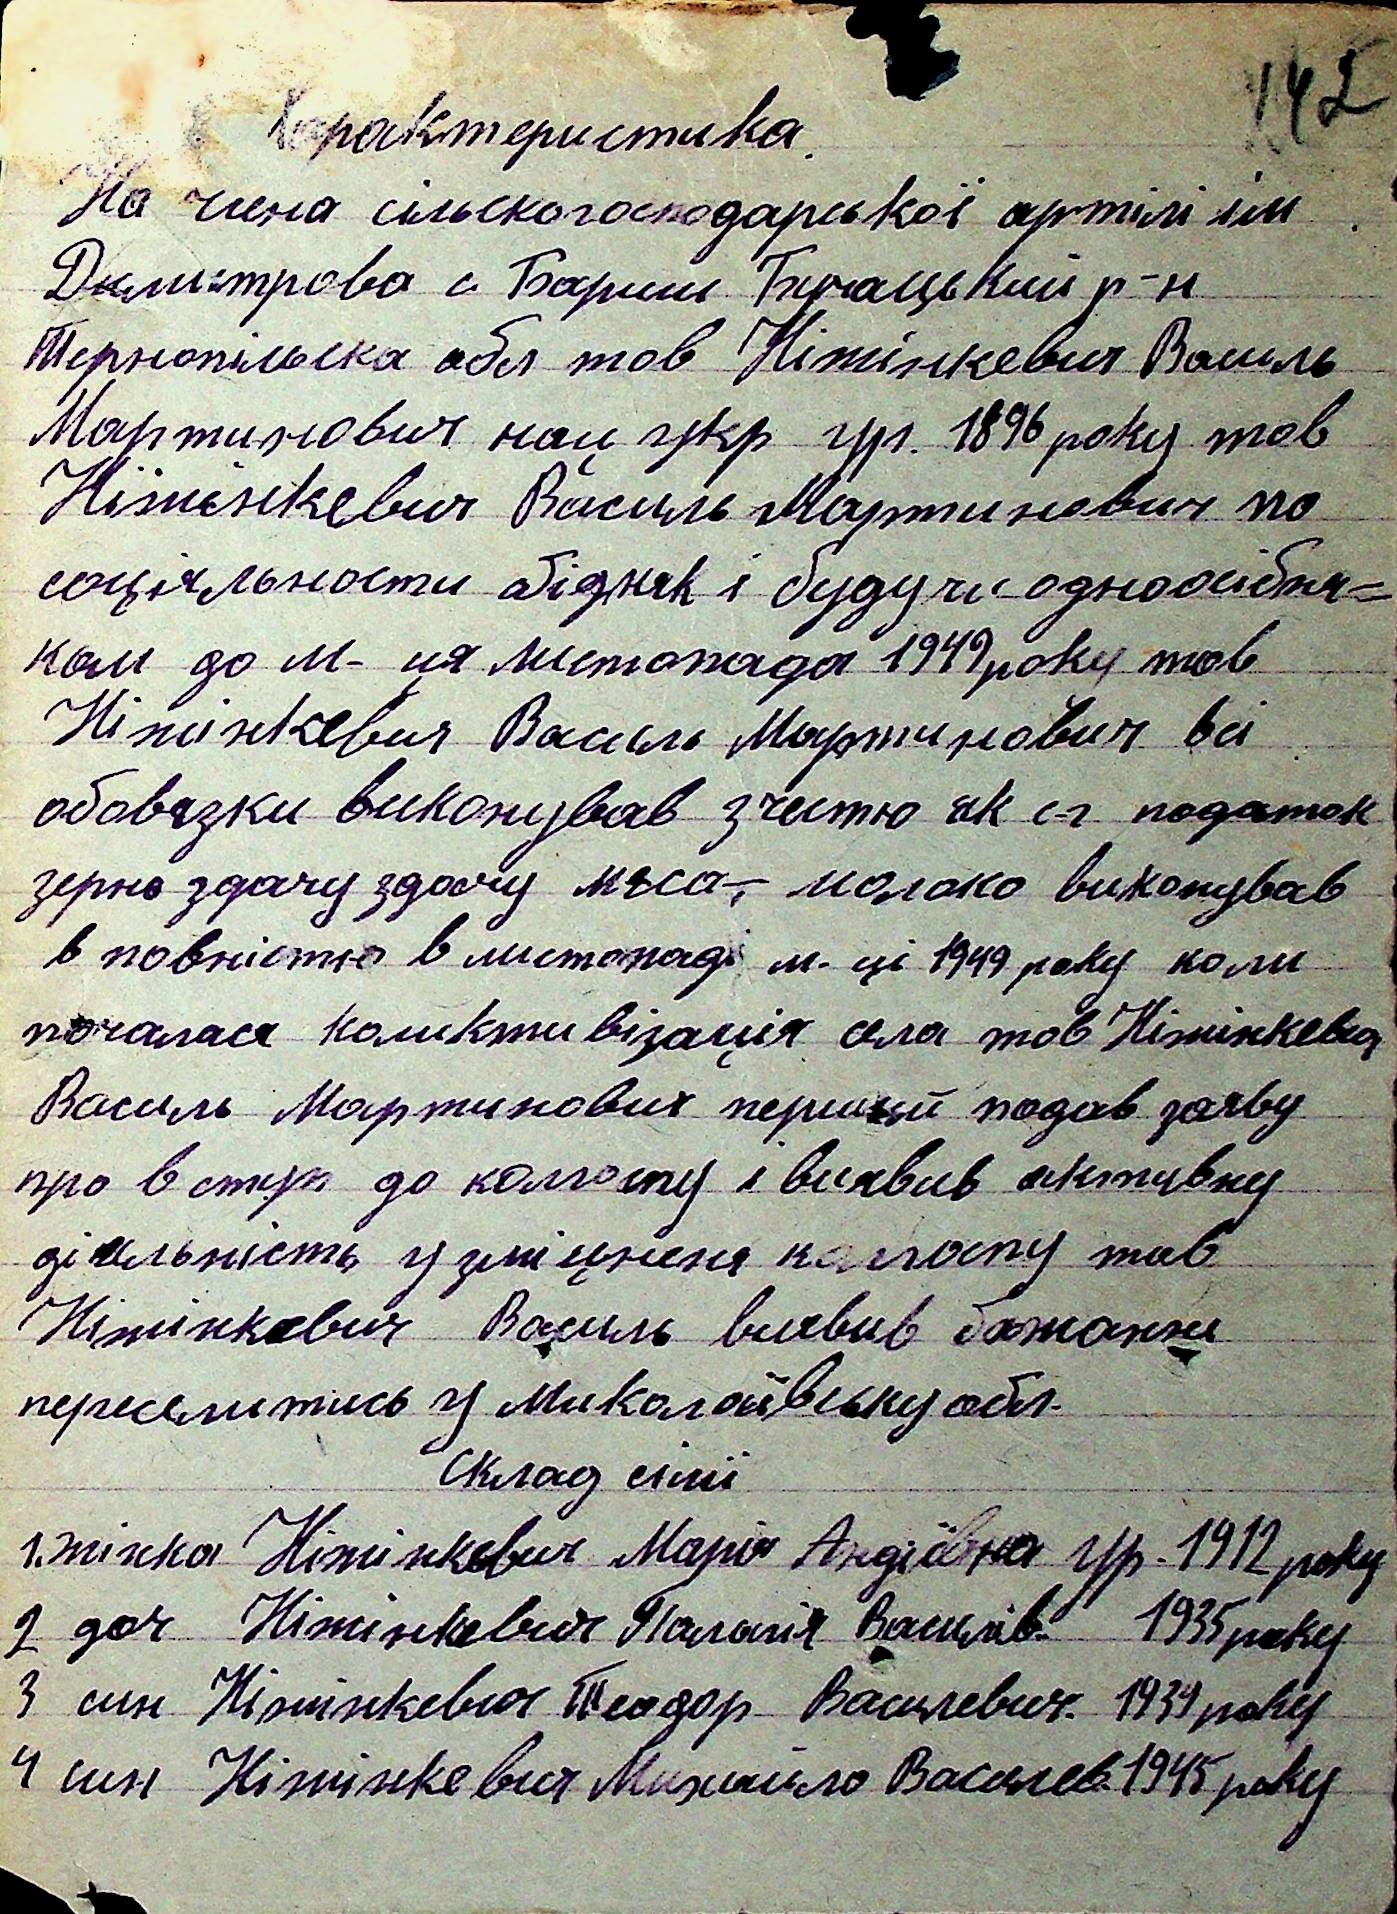 142
Характеристика.
На члена сільскогосподарської артілі ім
Димитрова с. Бариш Бучацький р-н
Тернопільска обл тов Ніжінкевич Василь
Мартинович нац укр гр. 1896 року тов
Ніжінкевич Василь Мартинович по
соціяльности бідняк і будучи одноосібня=
ком до м-ця листопада 1949 року тов
Ніжінкевич Василь Мартинович всі
обовязки виконував з честю як с-г податок
зерно здачу здачу мяса, молоко виконував
в повністю в листопаді м-ці 1949 року коли
почалася коликтивізація села тов Ніжінкевич
Василь Мартинович перший подав заяву
про вступ до колгоспу і виявив активну
діяльність у зміцненя колгоспу тов
Ніжінкевич Василь виявив бажання
переселитись у Миколаївську обл.
Склад сімї
1. жінка Ніжінкевич Марія Андіївна гр. 1912 року
2 доч Ніжінкевич Василів. 1935 року
3 син Ніжінкевич Теодор Василевич. 1939 року
4 син Ніжінкевич Михайло Василев. 1945 року